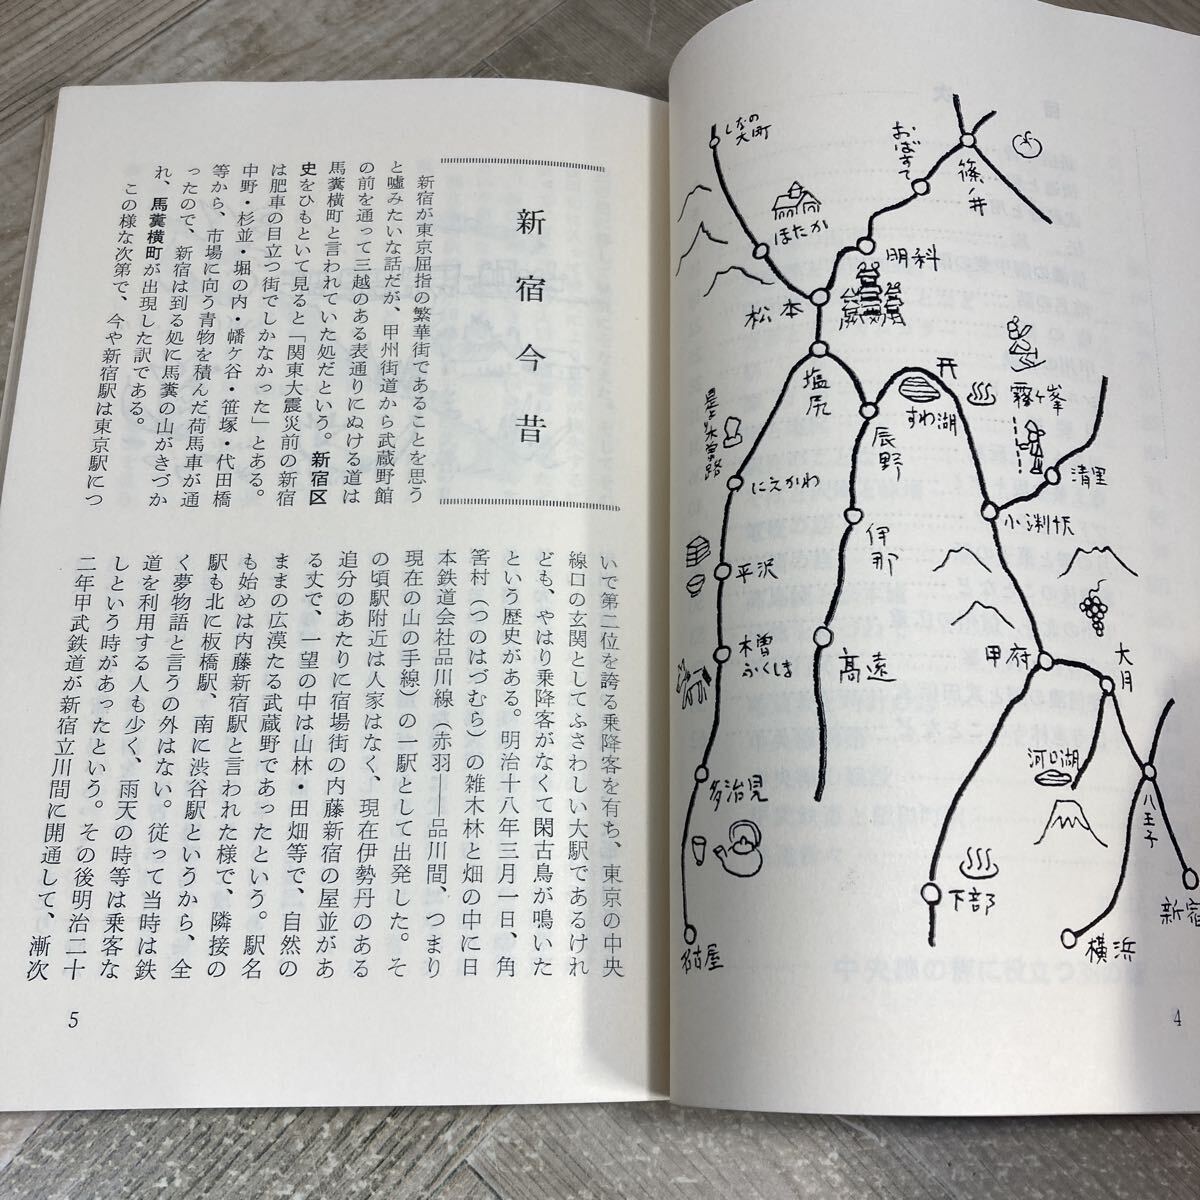 しなの大町
おばすて
篠ノ井
ほたか
明科
松本
塩尻
辰野
すわ湖
霧ヶ峯
清里
小渕沢
是より木曽路
にえかわ
伊那
平沢
木曽ふくしま
高遠
甲府
大月
河口湖
八王子
多治見
下部
横浜
新宿
名古屋
4
新宿今昔
新宿が東京屈指の繁華街であることを思う
と嘘みたいな話だが、甲州街道から武蔵野館
の前を通って三越のある表通りにぬける道は
馬糞横町と言われていた処だという。新宿区
史をひもといて見ると「関東大震災前の新宿
は肥車の目立つ街でしかなかった」とある。
中野・杉並・堀の内・幡ケ谷・笹塚・代田橋
等から、市場に向う青物を積んだ荷馬車が通
ったので、新宿は到る処に馬糞の山がきづか
れ、馬糞横町が出現した訳である。
この様な次第で、今や新宿駅は東京駅につ
いで第二位を誇る乗降客を有ち、東京の中央
線口の玄関としてふさわしい大駅であるけれ
ども、やはり乗降客がなくて閑古鳥が鳴いた
という歴史がある。明治十八年三月一日、角
筈村（つのはづむら）の雑木林と畑の中に日
本鉄道会社品川線（赤羽――品川間、つまり
現在の山の手線）の一駅として出発した。そ
の頃駅附近は人家はなく、現在伊勢丹のある
追分のあたりに宿場街の内藤新宿の屋並があ
る丈で、一望の中は山林・田畑等で、自然の
ままの広漠たる武蔵野であったという。駅名
も始めは内藤新宿駅と言われた様で、隣接の
駅も北に板橋駅、南に渋谷駅というから、全
く夢物語と言うの外はない。従って当時は鉄
道を利用する人も少く、雨天の時等は乗客な
しという時があったという。その後明治二十
二年甲武鉄道が新宿立川間に開通して、漸次
5